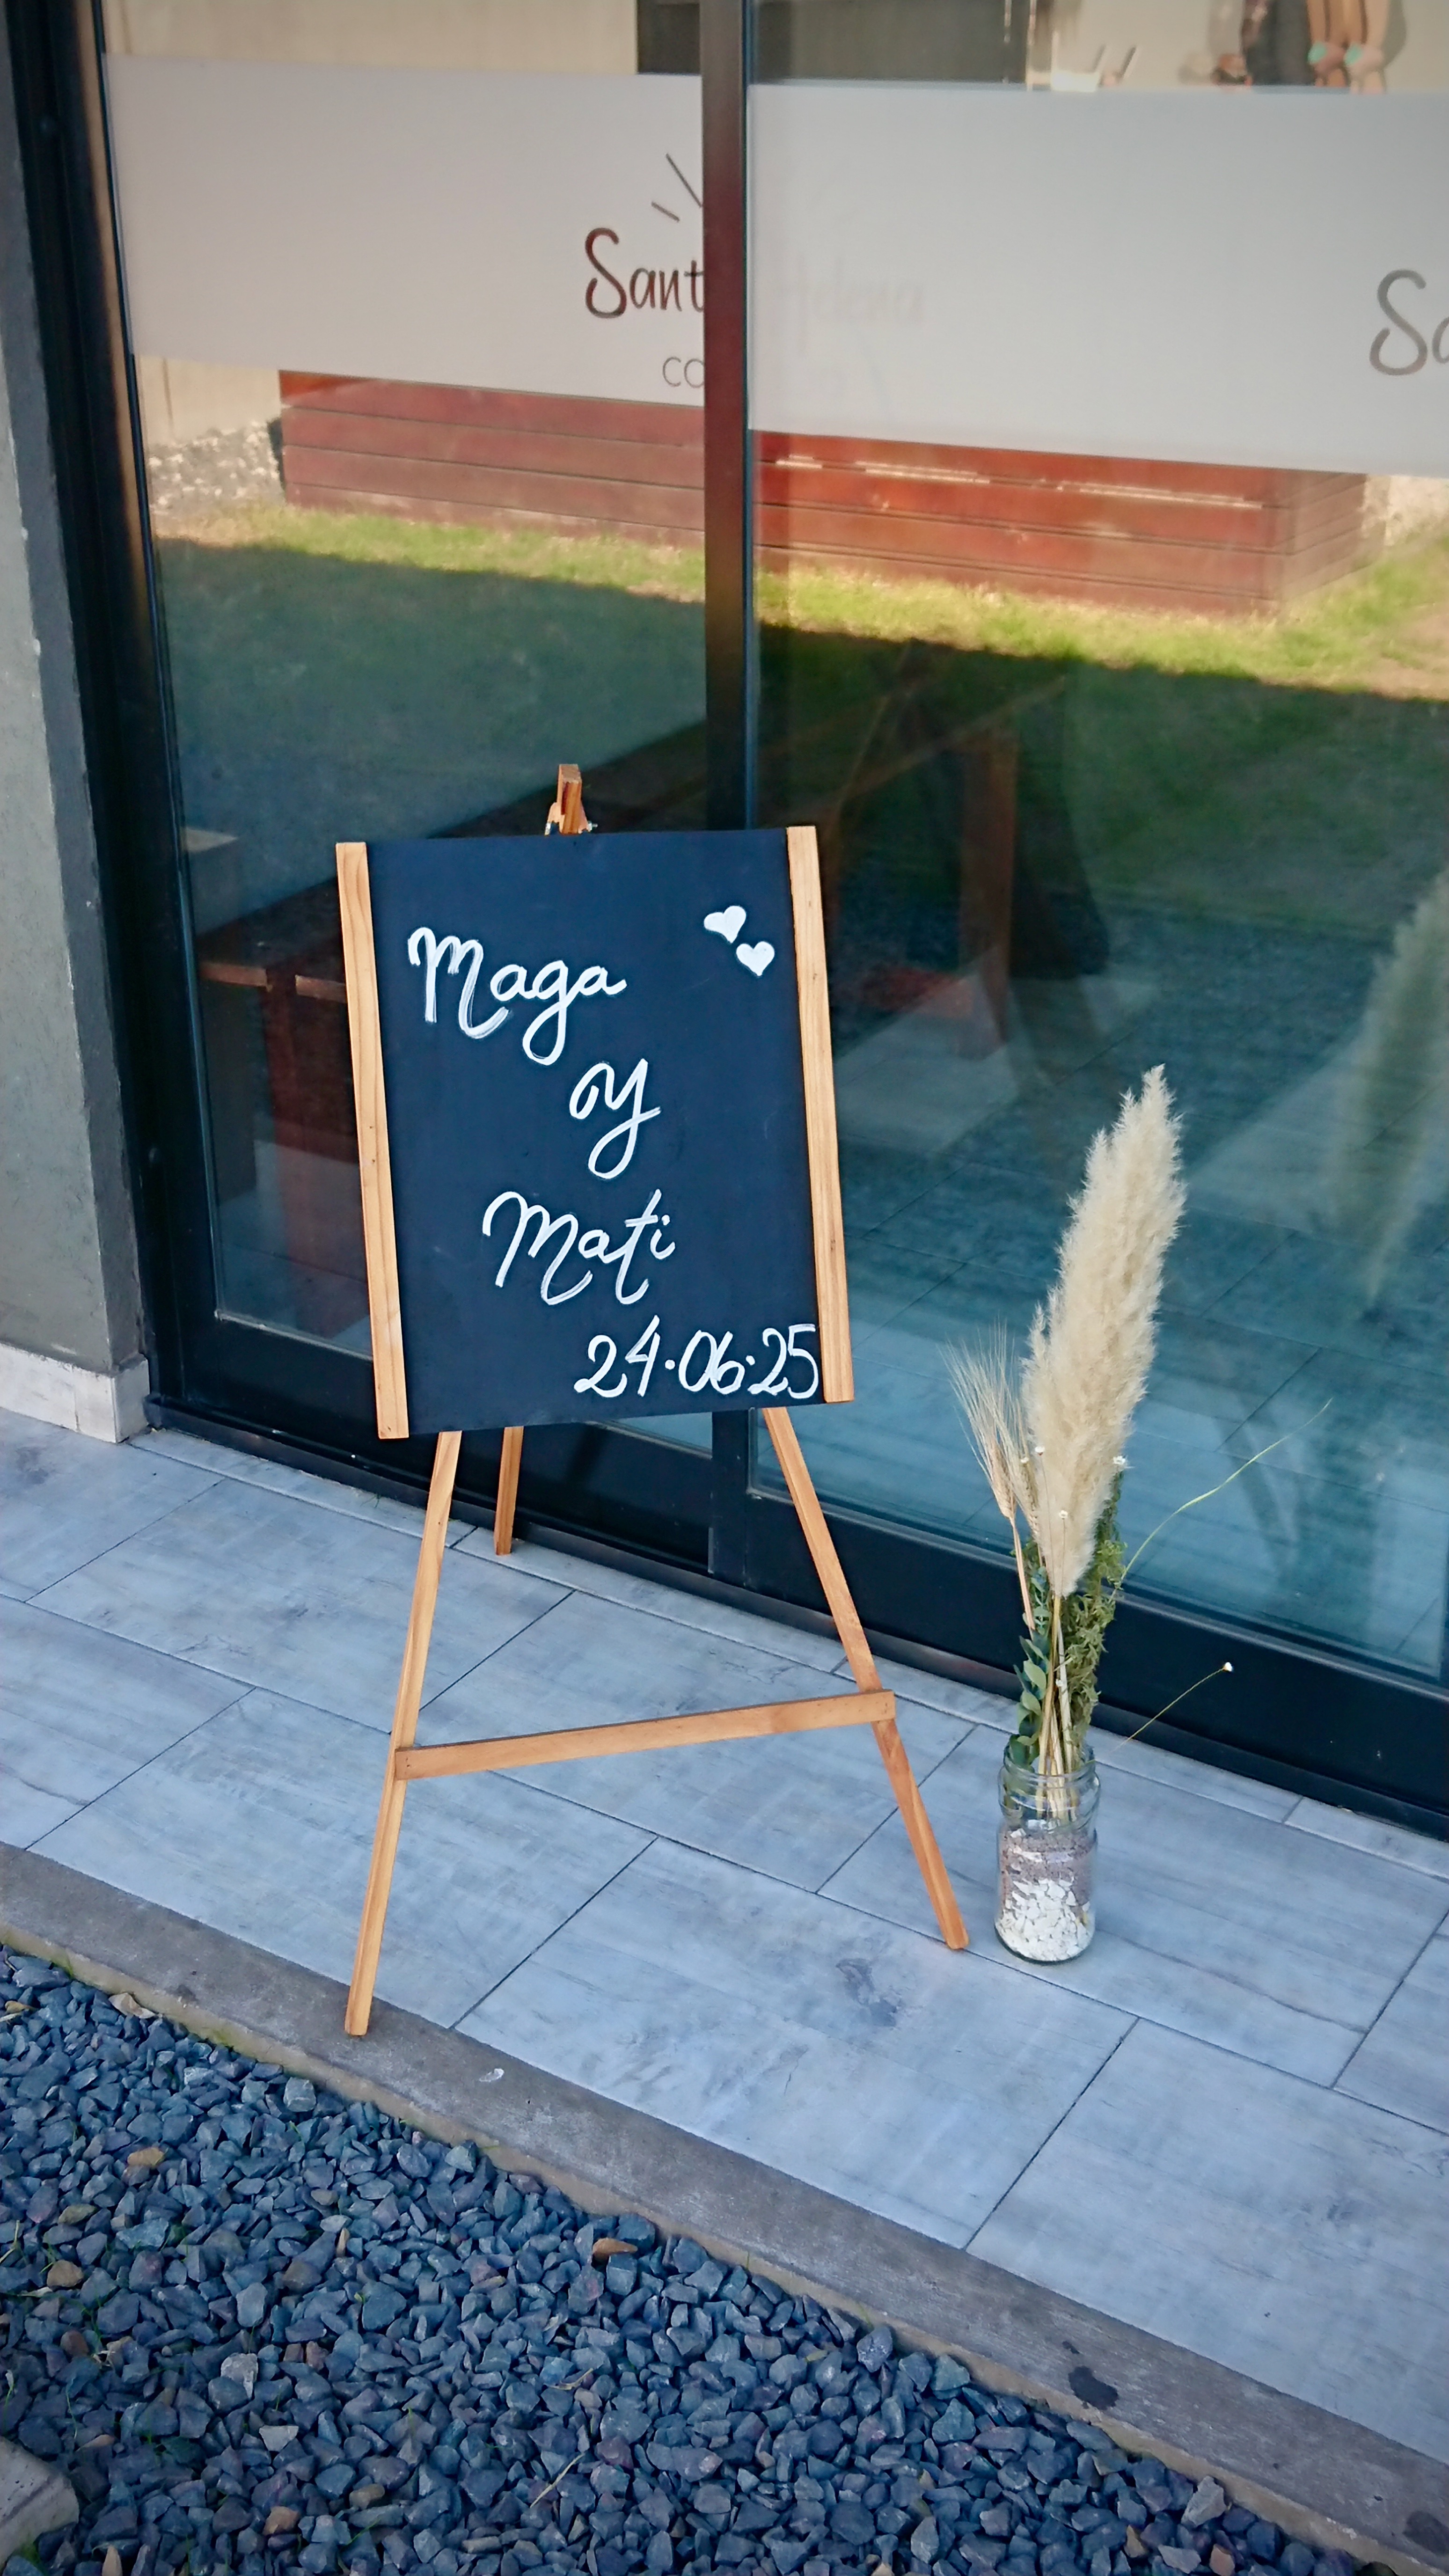 Sant
Helena
CO
Sa
Maga
y
Mati
24·06·25